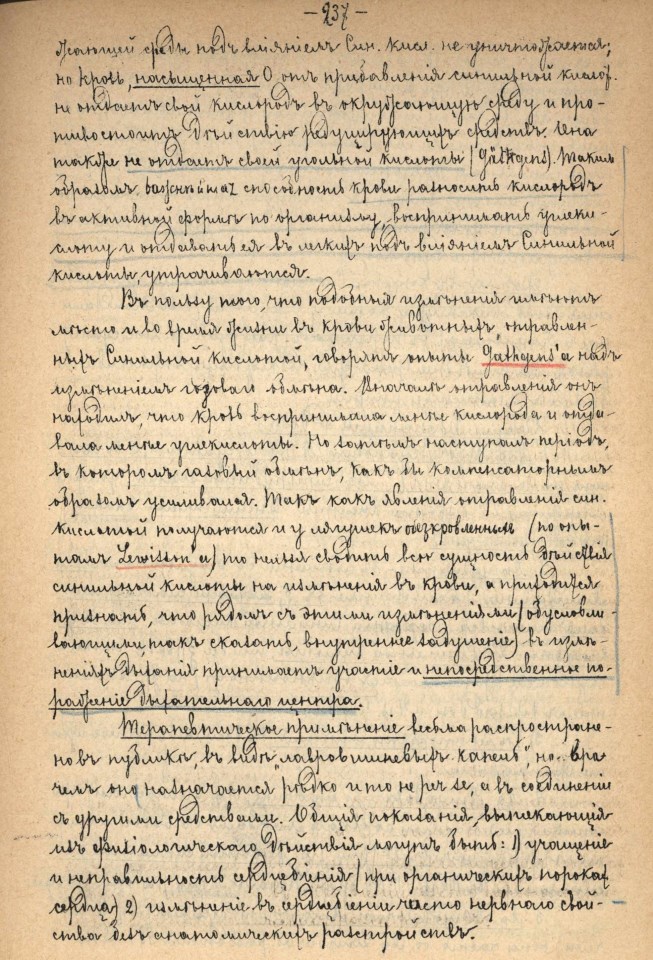 — 237 —
жающей среды подъ вліяніемъ Син. кисл. не уничтожается;
но кровь, насыщенная O, отъ прибавленія синильной кислот.
не отдаетъ свой кислородъ въ окружающую среду и про-
тивостоитъ дѣйствію редуцирующихъ средствъ. Она
также не отдаетъ своей угольной кислоты (Gäthgens). Такимъ
образомъ, важнѣйшая способность крови разносить кислородъ
въ активной формѣ по организму, воспринимать углеки-
слоту и отдавать ея въ легкихъ подъ вліяніемъ Синильной
кислоты, утрачиваются.
Въ пользу того, что подобныя измѣненія имѣютъ
мѣсто и во время жизни въ крови животныхъ, отравлен-
ныхъ Синильной кислотой, говорятъ опыты Gathgens'а надъ
измѣненіемъ газоваго обмѣна. Вначалѣ отравленія онъ
находилъ, что кровь воспринимала менѣе кислорода и отда-
вала менѣе углекислоты. Но затѣмъ наступалъ періодъ,
въ которомъ газовый обмѣнъ, какъ бы компенсаторнымъ
образомъ усиливался. Такъ какъ явленія отравленія син.
кислотой получаются и у лягушекъ обезкровленныхъ (по опы-
тамъ Lewisson'а) то нельзя сводить всю сущность дѣйствія
синильной кислоты на измѣненія въ крови, а приходится
признать, что рядомъ съ этими измѣненіями (обусловли-
вающими такъ сказать, внутреннее задушеніе) въ измѣ-
неніяхъ дыханія принимаетъ участіе и непосредственное по-
раженіе дыхательнаго центра.
Терапевтическое примѣненіе весьма распростране-
но въ публикѣ, въ видѣ „лавровишневыхъ капель", но вра-
чемъ оно назначается рѣдко и то не per se, а въ соединеніе
съ другими средствами. Общія показанія, вытекающія
изъ физіологическаго дѣйствія могутъ быть: 1) учащеніе
и неправильность сердцебіенія (при органическихъ порокахъ
сердца) 2) измѣненіе въ сердцебіеніи чисто нервнаго свой-
ства безъ анатомическихъ разстройствъ.